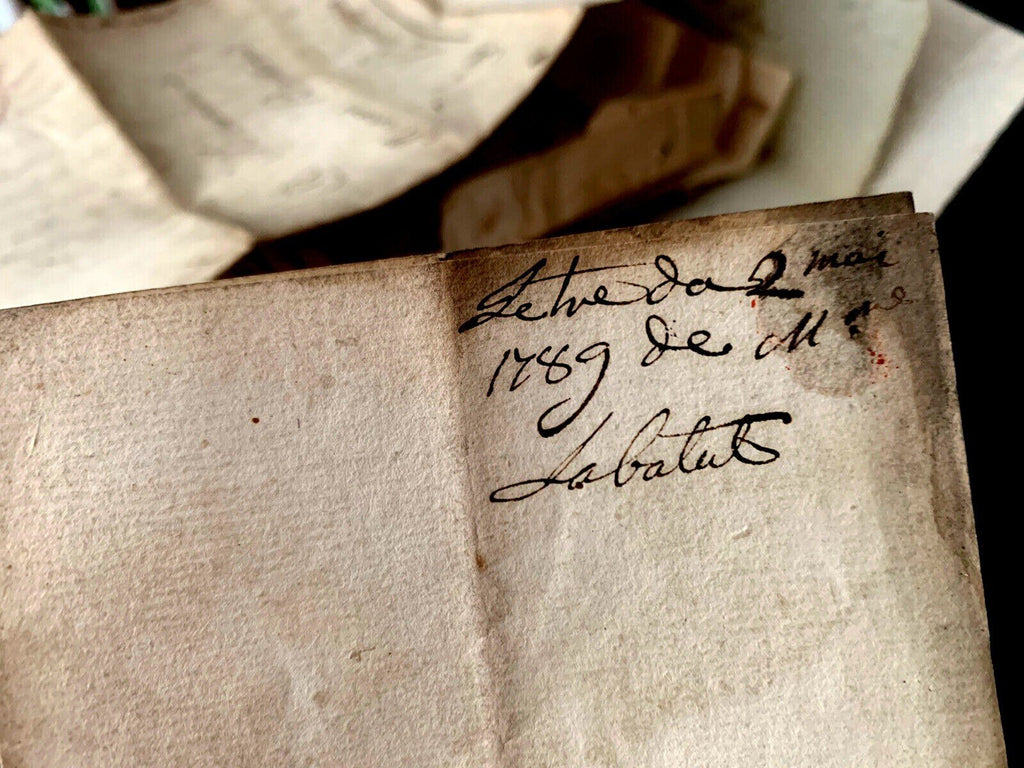 Letre da 2 mai
1789 de Mme
Labatut